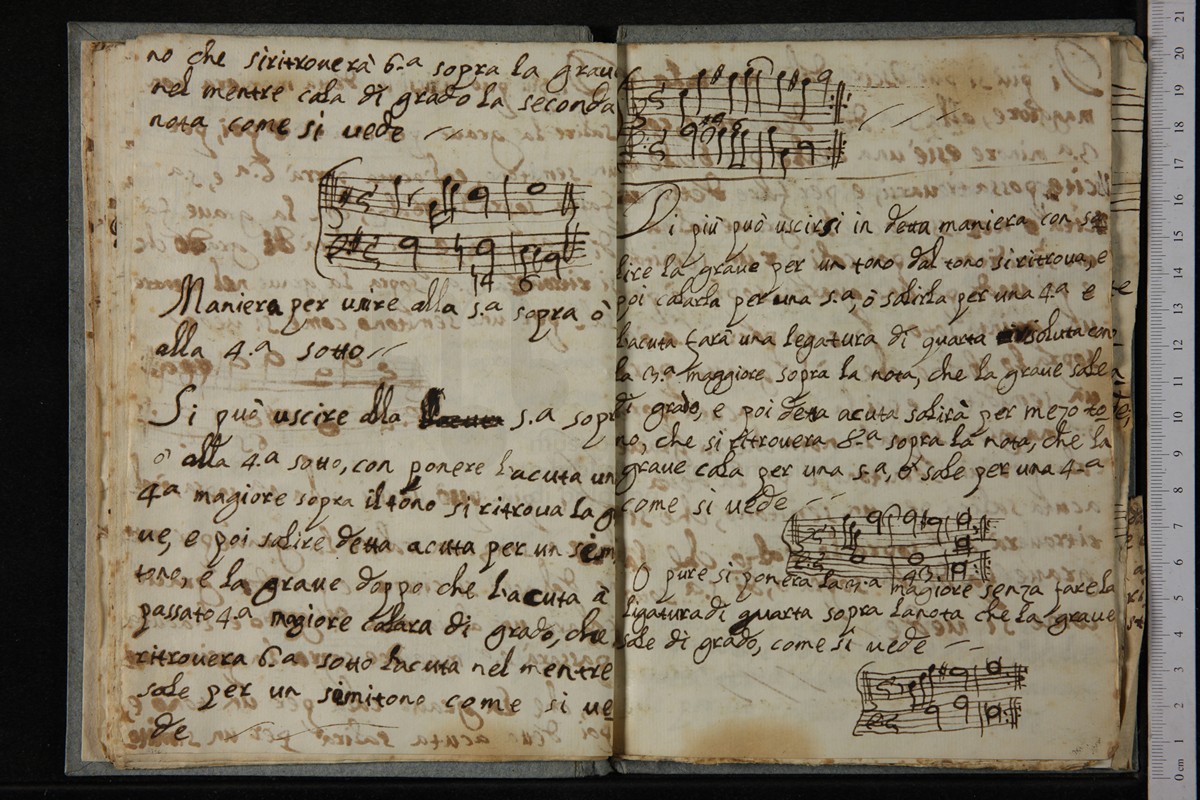 no che siritrouerà 6.a sopra la graue
nel mentre cala di grado la seconda
nota come si uede
14 6
Maniera per usire alla 5.a sopra ò
alla 4.a sotto
Si può uscire alla 5.a sopr
ò alla 4.a sotto, con ponere l'acuta un
4.a magiore sopra il tono si ritroua la g
ue, e poi salire detta acutta per un sem
tono, e la graue doppo che l'acuta à
passato 4.a magiore calara di grado, che
ritrouera 6.a sotto lacuta nel mentre
sale per un simitono come si ue
de
Di più può uscirsi in detta maniera con sa
lire la graue per un tono dal tono si ritroua, e
poi calarla per una 5.a, ò salirla per una 4.a e
l'acuta farà una legatura di quarta risoluta con
la 3.a maggiore sopra la nota, che la graue sale
di grado, e poi detta acuta salirà per mezo to
no, che si ritrouera 8.a sopra la nota, che la
graue cala per una 5.a, ò sale per una 4.a
come si uede
43
O pure si ponera la 3.a magiore senza fare la
ligatura di quarta sopra la nota che la graue
sale di grado, come si uede